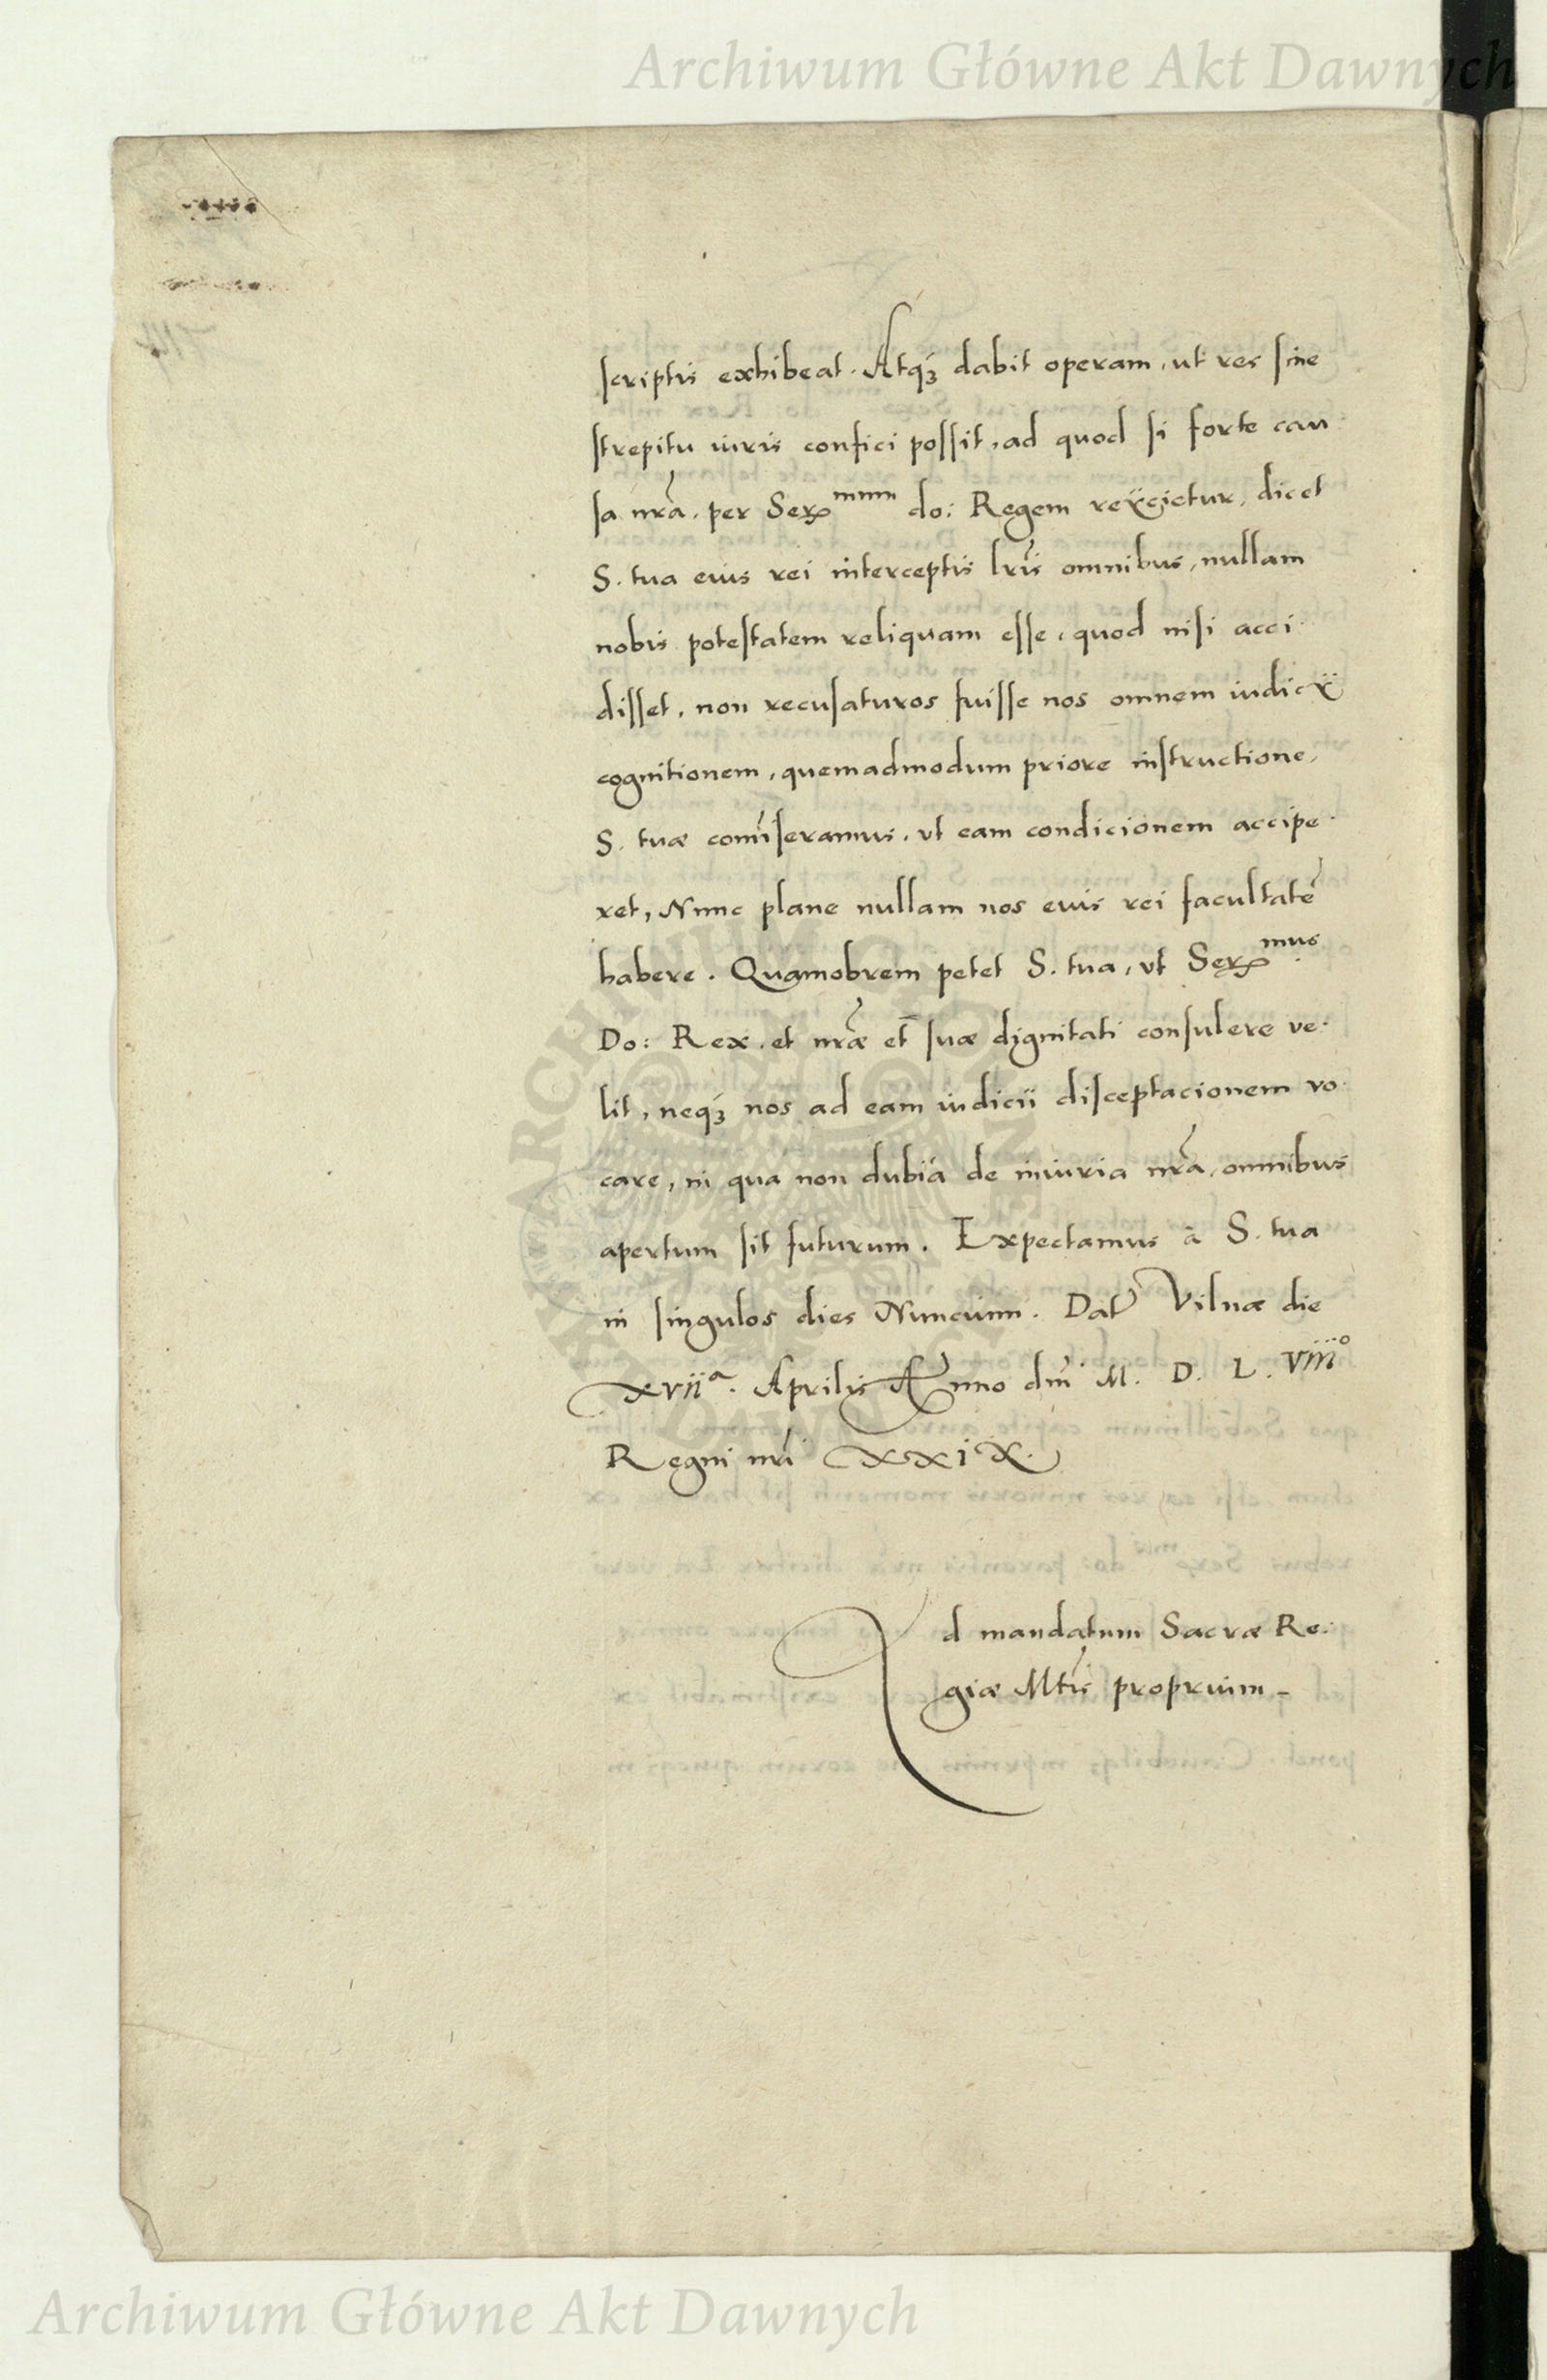 Archiwum Główne Akt Dawnych
scriptis exhibeat. Atqꝫ dabit operam, ut res sine
strepitu iuris confici possit, ad quod si forte cau
sa nrã. per Ser^mum do: Regem reijcietur, dicet
S. tua eius rei interceptis lrĩs omnibus, nullam
nobis potestatem reliquam esse, quod nisi acci
disset, non recusaturos fuisse nos omnem iudicij
cognitionem, quemadmodum priore instructione,
S. tuæ comiseramus, vt eam condicionem accipe
ret, Nunc plane nullam nos euis rei facultatẽ
habere. Quamobrem petet S. tua, vt Ser^mus
Do: Rex, et nræ et suæ dignitati consulere ve
lit, neqꝫ nos ad eam iudicii disceptacionem vo
care, in qua non dubia de iniuria nrã, omnibus
apertum sit futurum. Expectamus à S. tua
in singulos dies Nuncium. Dat Vilnæ die
xvii^a. Aprilis Anno dni M. D. L. viii^o
Regni nri XXIX.
Ad mandatum Sacræ Re
giæ Mtis proprium
ARCHIWUM GŁÓWNE
AKT DAWNYCH
Archiwum Główne Akt Dawnych